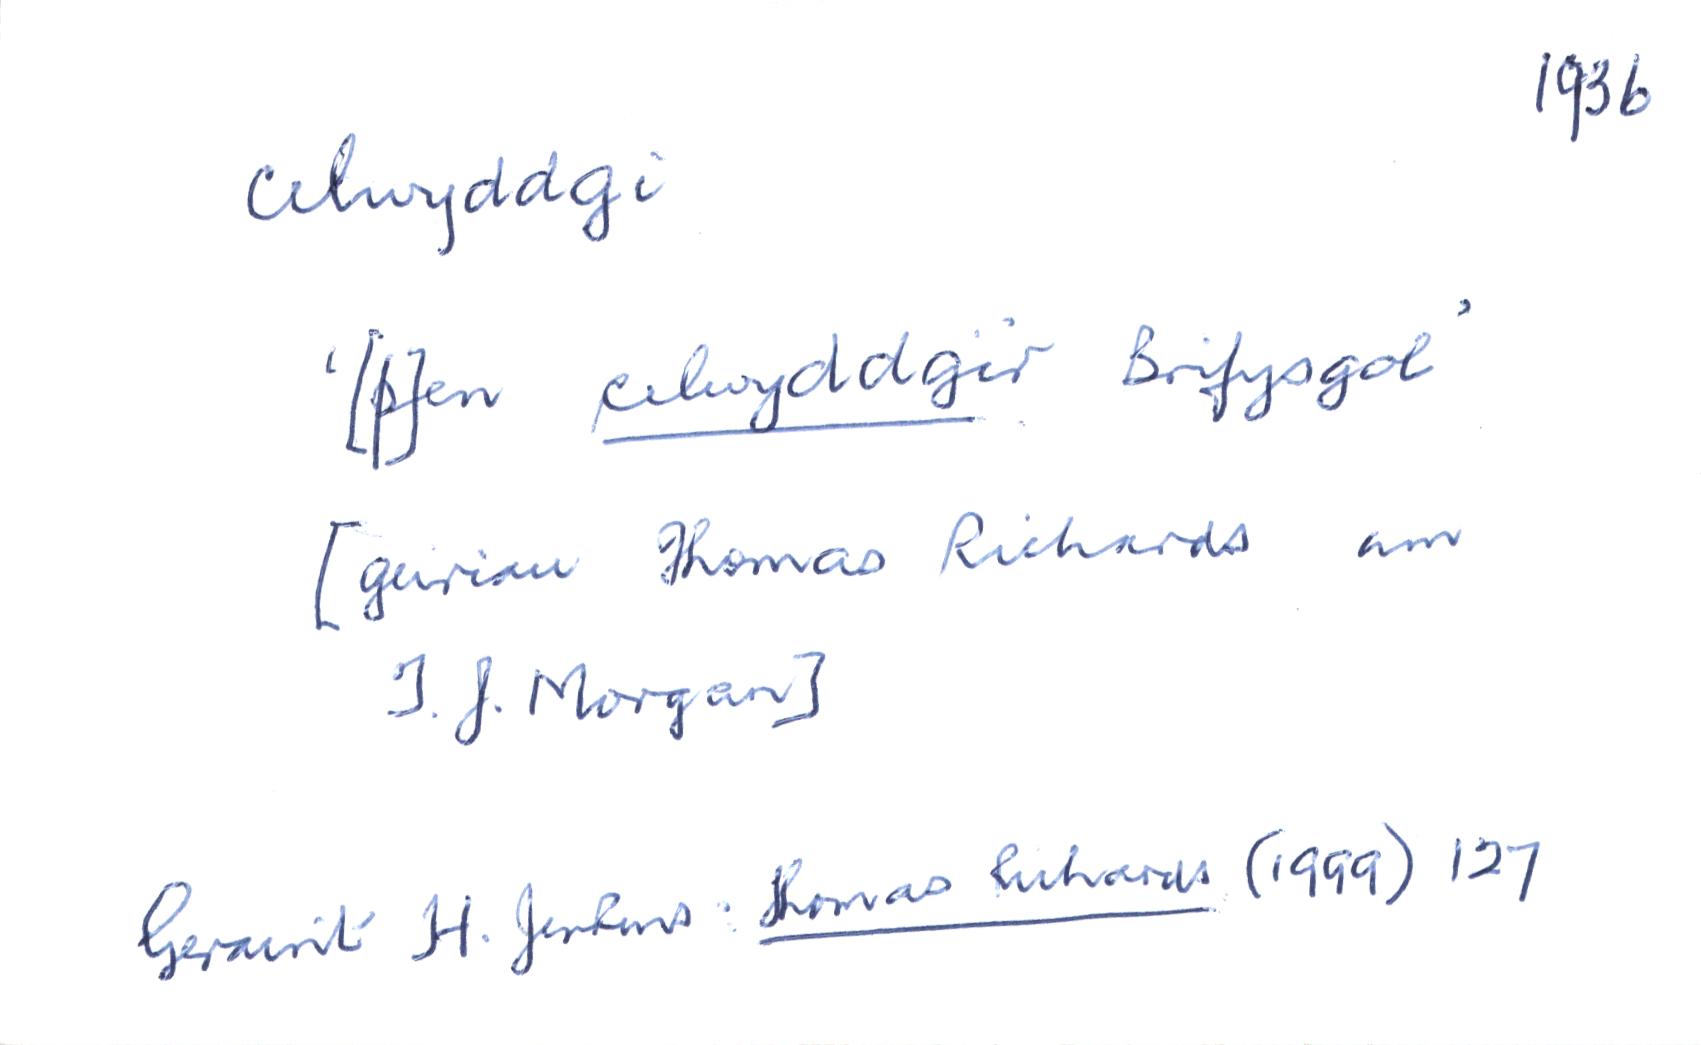 1936
celwyddgi
'[p]en celwyddgi'r Brifysgol'
[geiriau Thomas Richards am
T. J. Morgan]
Geraint H. Jenkins: Thomas Richards (1999) 127